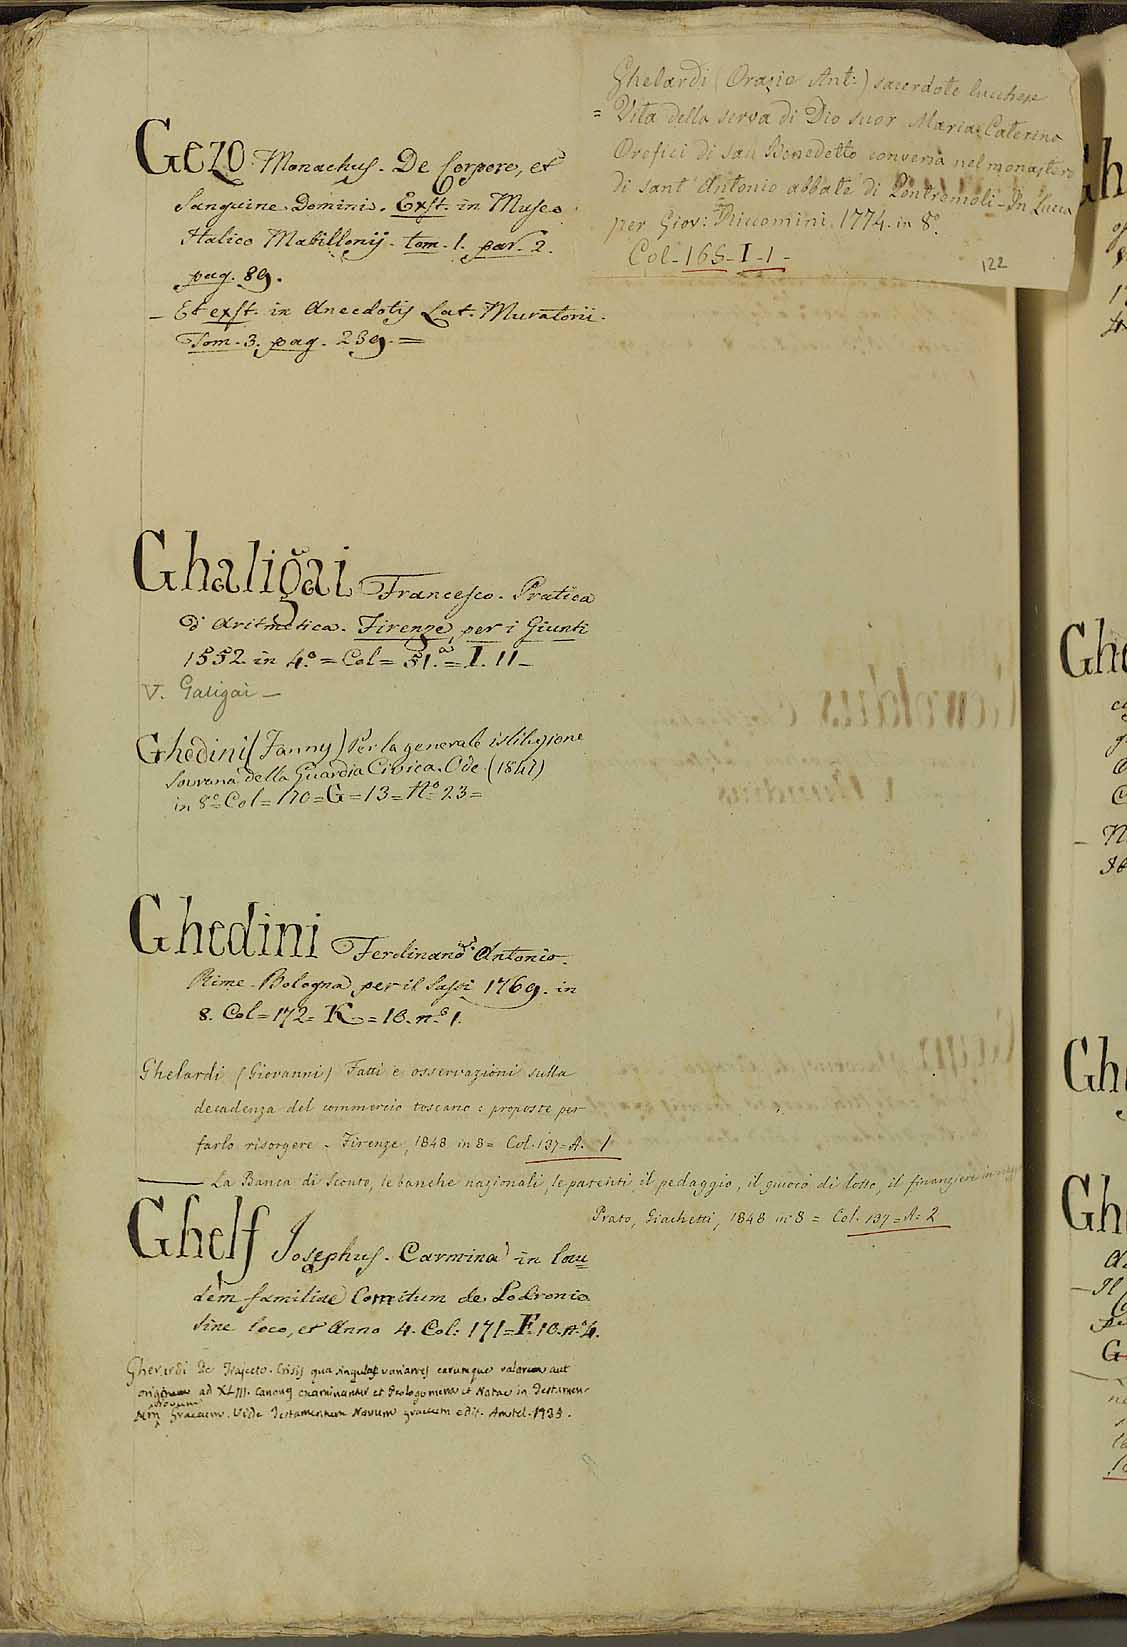 Gezo Monachus. De Corpore, et
Sanguine Domini. Exst. in Museo
Italico Mabillonij. tom. 1. par. 2.
pag. 89.
— Et exst. in Anecdotis Lat. Muratorii.
Tom. 3. pag. 239. =
Ghelardi (Orazio Ant:) sacerdote lucchese
= Vita della serva di Dio suor Maria Caterina
Orefici di San Benedetto conversa nel monastero
di sant' Antonio abbate di Pontremoli - In Lucca
per Giov: Riccomini. 1774. in 8º.
Col - 165 - I - 1 -
122
Ghaligai Francesco. Pratica
d' Aritmetica. Firenze, per i Giunti
1552. in 4.º = Col = 51.ª = I. 11 -
V. Galigai —
Ghedini (Fanny) Per la generale istituzione
Sovrana della Guardia Civica. Ode. (1847)
in 8º = Col = 170 = G = 13 = Nº 23 =
Ghedini Ferdinando Antonio.
Rime. Bologna, per il Sassi 1769. in
8. Col = 172 = K = 10. n.º 1.
Ghelardi (Giovanni) Fatti e osservazioni sulla
decadenza del commercio toscano: proposte per
farlo risorgere - Firenze, 1848 in 8 = Col. 137 = A. 1
——— La Banca di Sconto, le banche nazionali, le patenti, il pedaggio, il giuoco di lotto, il finanziere in
Prato, Giachetti, 1848 in 8 = Col. 137 = A = 2
Ghelf Josephus. Carmina in lau
dem familiae Comitum de Lodronio
Sine loco, et Anno 4. Col: 171 = F. 10. nº 4.
Gherardi De Trajecto. Crisis qua singulas variantes earumque valorem aut
originem ad XLIII. Canones examinantur et Prolegomena et Notae in Testamen-
tum Novum Graecum. Vide Testamentum Novum graecum edit. Amstel. 1735.